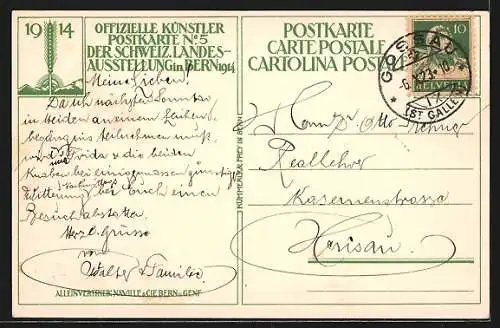 1914
OFFIZIELLE KÜNSTLER
POSTKARTE No 5
DER SCHWEIZ. LANDES-
AUSSTELLUNG in BERN 1914
Meine Lieben!
Da ich nächsten Sonntag
in beiden an einem Leichen-
begängnis teilnehmen muß,
Frida & die beiden
Knaben bei einigermassen günstiger
Witterung bei Euch einen
Besuch abstatten
Herzl. Grüsse
von
Walter & Familie
ALLEINVERTRIEB: NAVILLE & CIE BERN u. GENF
KÜMMERLY & FREY IN BERN
POSTKARTE
CARTE POSTALE
CARTOLINA POSTALE
GOSSAU
(ST GALLEN)
10
HELVETIA
Otto
Reallehrer
Kasernenstrasse
Herisau.